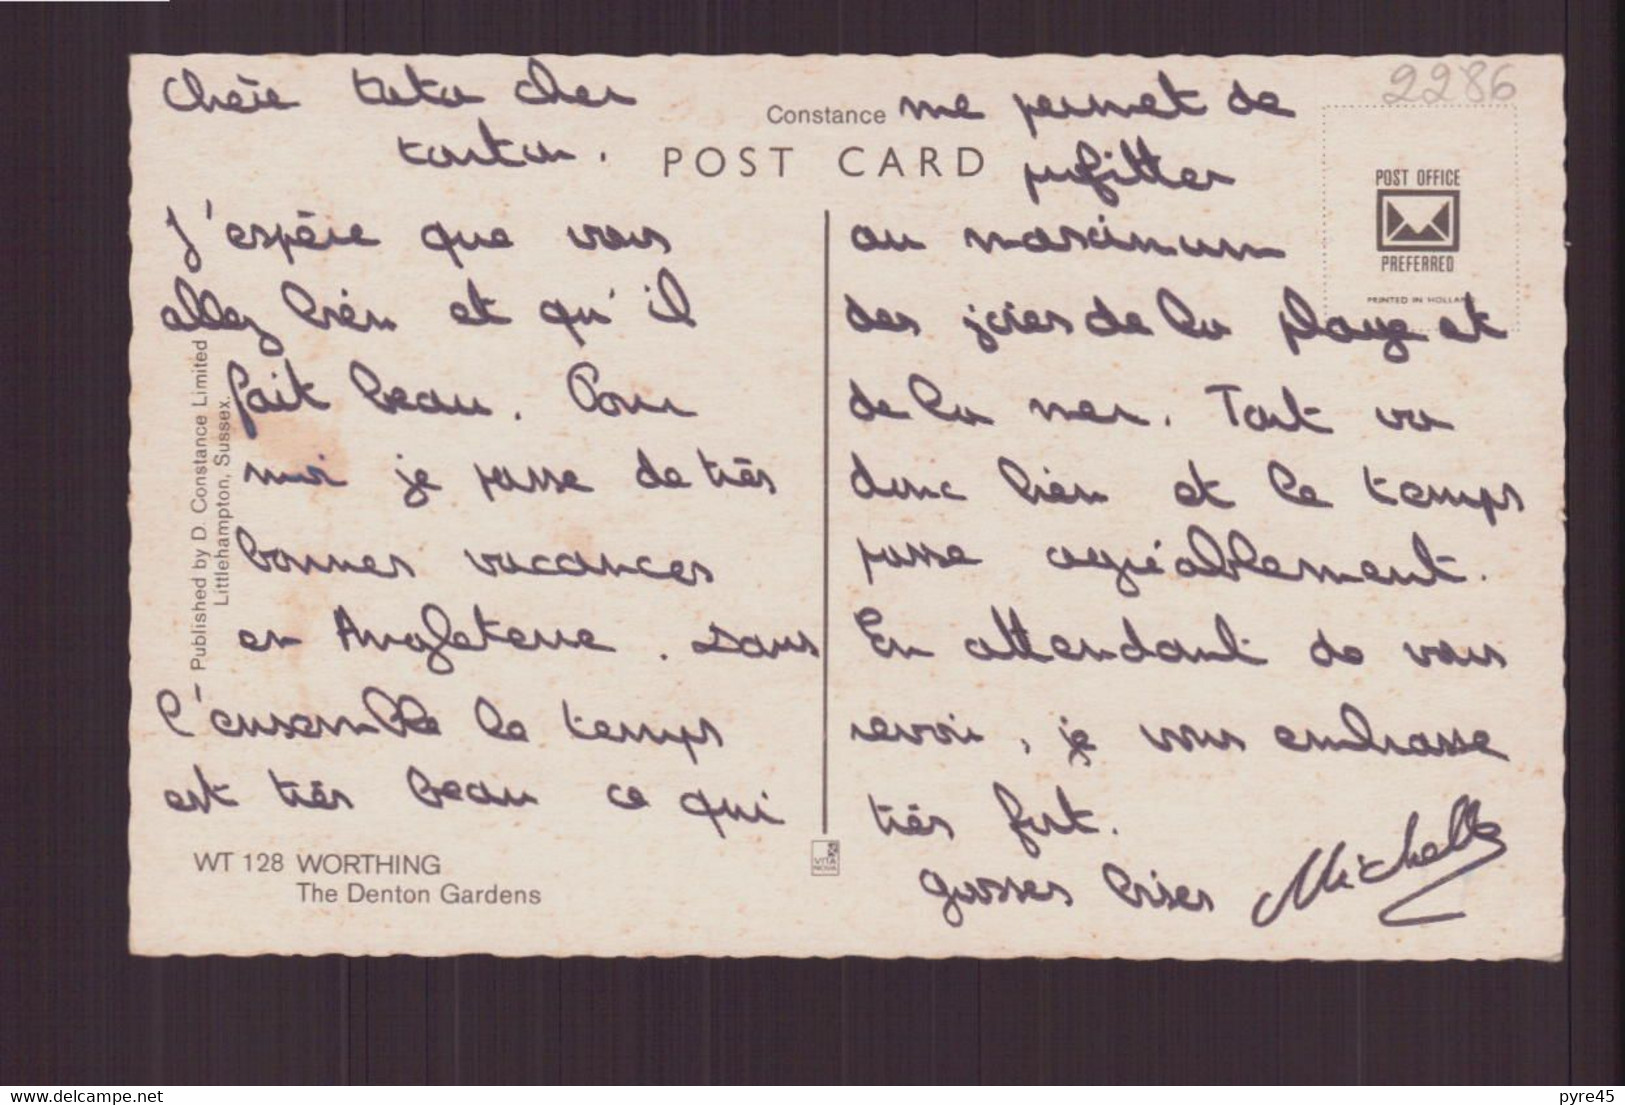 2286
Chère tata cher
tonton.
J'espère que vous
allez bien et qu'il
fait beau. Pour
moi je passe de très
bonnes vacances
en Angleterre. Dans
l'ensemble le temps
est très beau ce qui
me permet de
profitter
au maximum
des joies de la plage et
de la mer. Tout va
donc bien et le temps
passe agréablement.
En attendant de vous
revoir, je vous embrasse
très fort.
grosses bises Michelle
Constance
POST CARD
POST OFFICE
PREFERRED
PRINTED IN HOLLAND
Published by D. Constance Limited
Littlehampton, Sussex.
WT 128 WORTHING
The Denton Gardens
VITA
NOVA
delcampe.net
pyre45